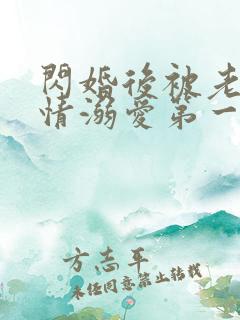 閃婚後被老
情溺愛第一
方志平
未任同意禁止转载